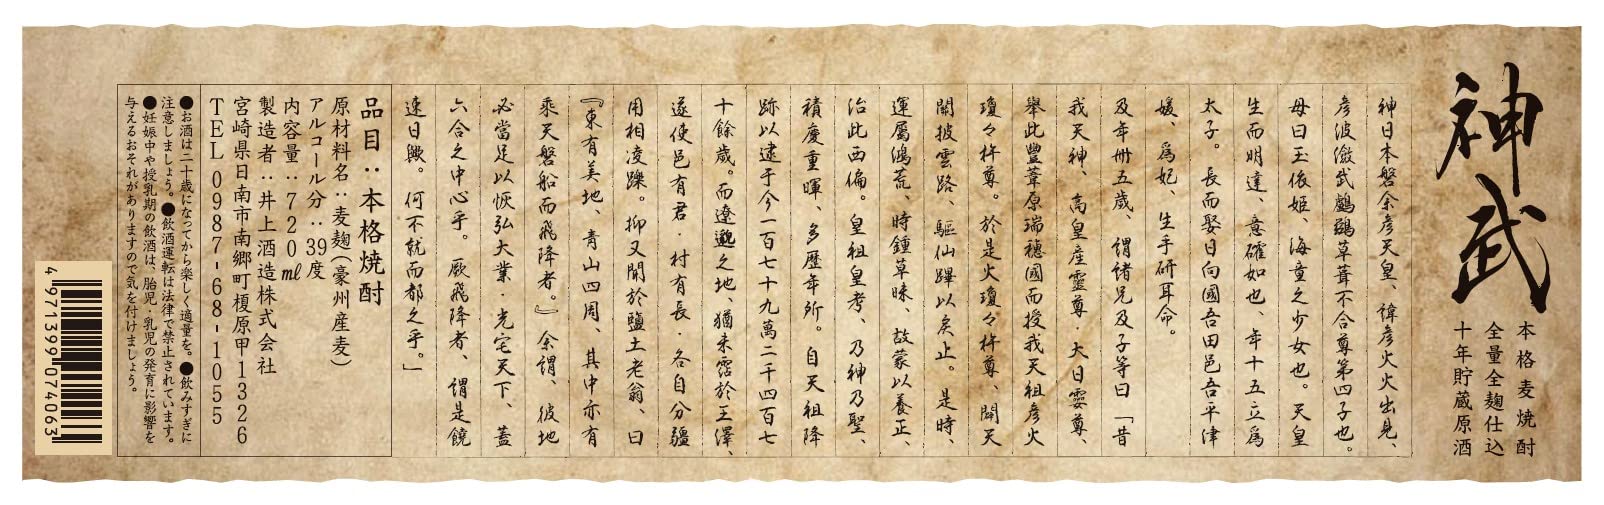 神武
本格麦焼酎
全量全麹仕込
十年貯蔵原酒
神日本磐余彦天皇、諱彦火火出見、
彦波瀲武鸕鷀草葺不合尊第四子也。
母曰玉依姫、海童之少女也。天皇
生而明達、意確如也、年十五立爲
太子。長而娶日向國吾田邑吾平津
媛、爲妃、生手研耳命。
及年卌五歳、謂諸兄及子等曰「昔
我天神、高皇産靈尊・大日孁尊、
舉此豐葦原瑞穂國而授我天祖彦火
瓊々杵尊。於是火瓊々杵尊、闢天
關披雲路、驅仙蹕以戻止。是時、
運屬鴻荒、時鍾草昧、故蒙以養正、
治此西偏。皇祖皇考、乃神乃聖、
積慶重暉、多歴年所。自天祖降
跡以逮于今一百七十九萬二千四百七
十餘歳。而遼邈之地、猶未霑於王澤、
遂使邑有君・村有長・各自分疆
用相凌躒。抑又聞於鹽土老翁、曰
『東有美地、青山四周、其中亦有
乘天磐船而飛降者。』余謂、彼地
必當足以恢弘大業・光宅天下、蓋
六合之中心乎。厥飛降者、謂是饒
速日歟。何不就而都之乎。」
品目：本格焼酎
原材料名：麦麹（豪州産麦）
アルコール分：39度
内容量：720㎖
製造者：井上酒造株式会社
宮崎県日南市南郷町榎原甲1326
TEL 0987-68-1055
●お酒は二十歳になってから楽しく適量を。●飲みすぎに
注意しましょう。●飲酒運転は法律で禁止されています。
●妊娠中や授乳期の飲酒は、胎児・乳児の発育に影響を
与えるおそれがありますので気を付けましょう。
4971399074063